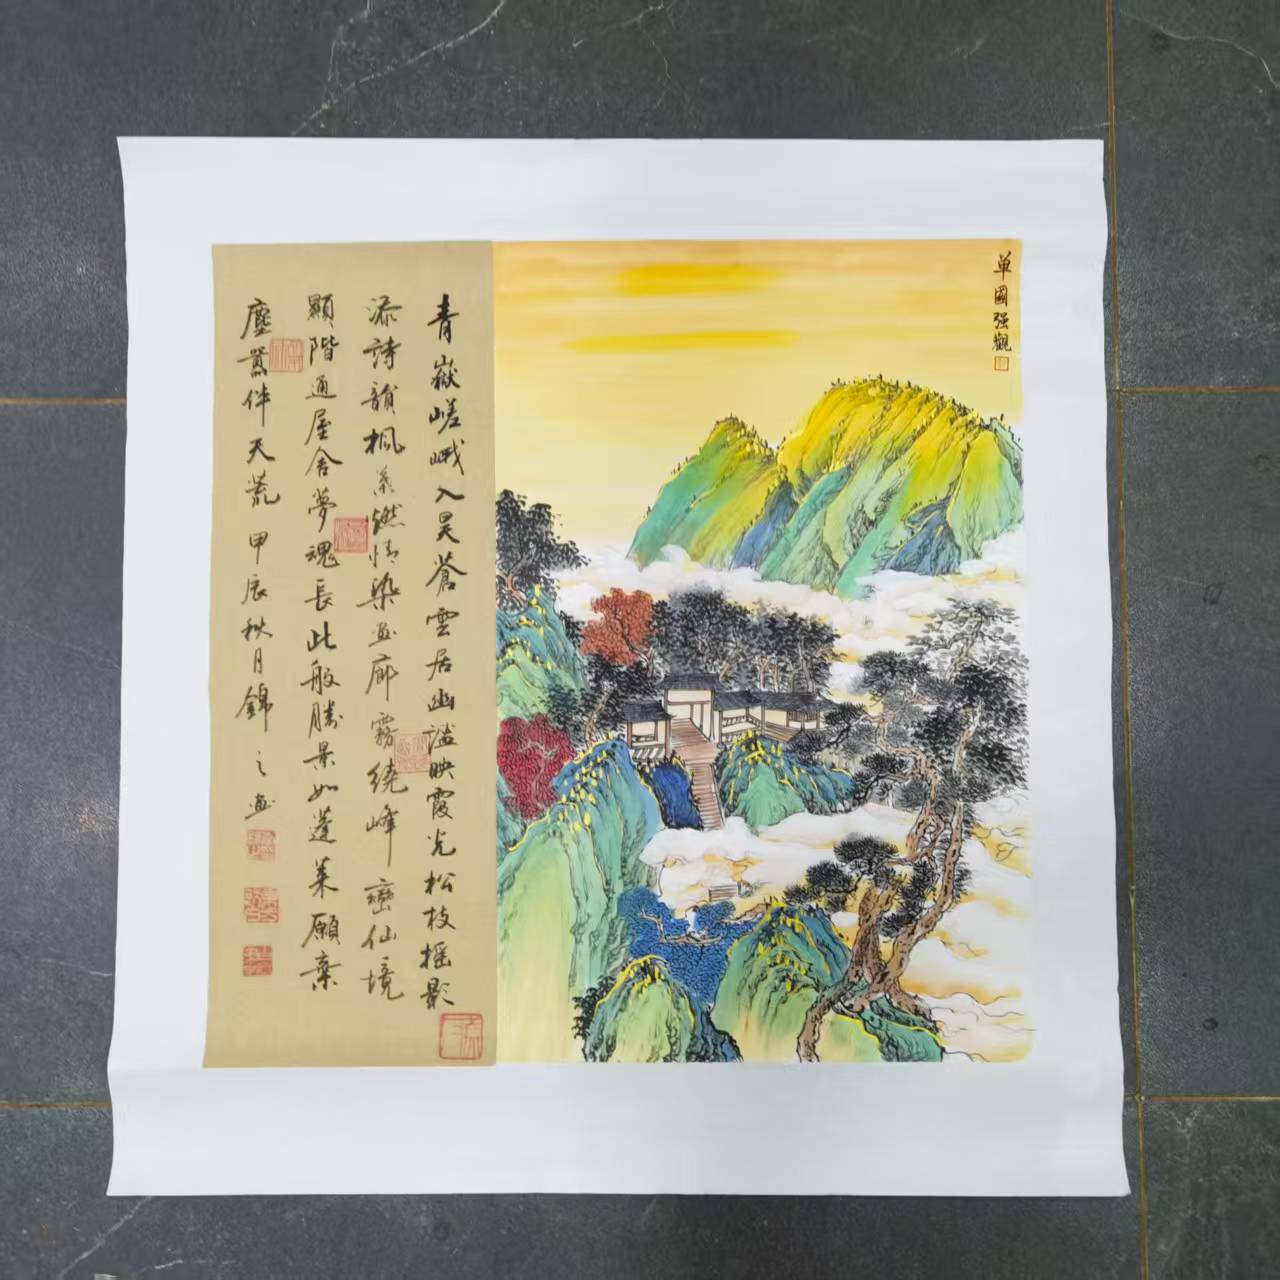 單國强觀
青嶽嵯峨入昊蒼雲居幽謐映霞光松枝摇影
添詩韻楓葉燃情染畫廊霧繞峰巒仙境
顯階通屋舍夢魂長此般勝景如蓬萊願棄
塵囂伴天荒甲辰秋月錦之畫